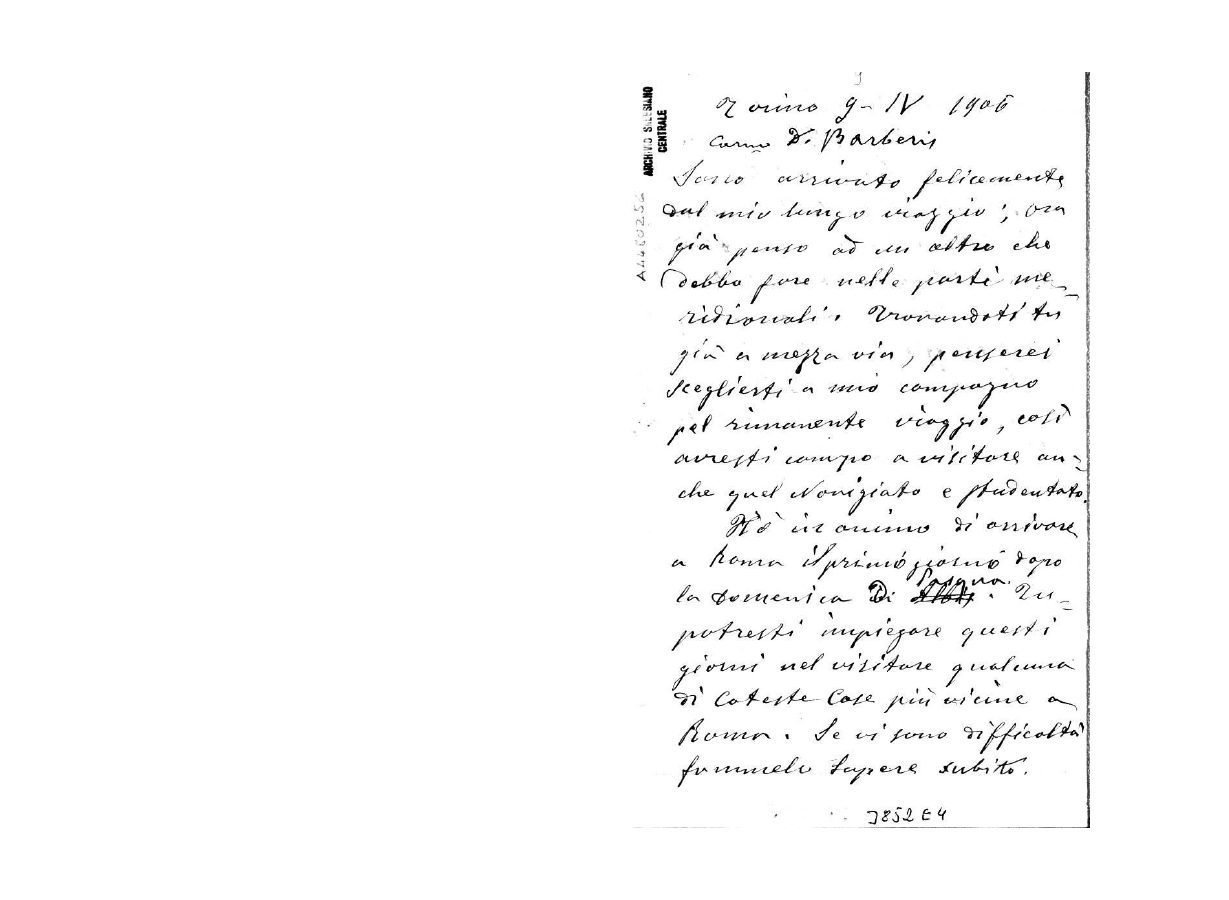 ARCHIVIO SALESIANO
CENTRALE
Torino 9-IV 1906
Carmo D. Barberis
Sono arrivato felicemente
dal mio lungo viaggio; ora
già penso ad un altro che
debbo fare nelle parti me-
ridionali. Trovandoti tu
già a mezza via, penserei
sceglierti a mio compagno
pel rimanente viaggio, così
avresti campo a visitare an-
che quel Novigiato e studentato.
Hò in animo di arrivare
a Roma il primo giorno dopo
la domenica Di Pasqua. Tu
potresti impiegare questi
giorni nel visitare qualcuna
di Coteste Case più vicine a
Roma. Se vi sono difficoltà
fammelo sapere subito.
J852E4